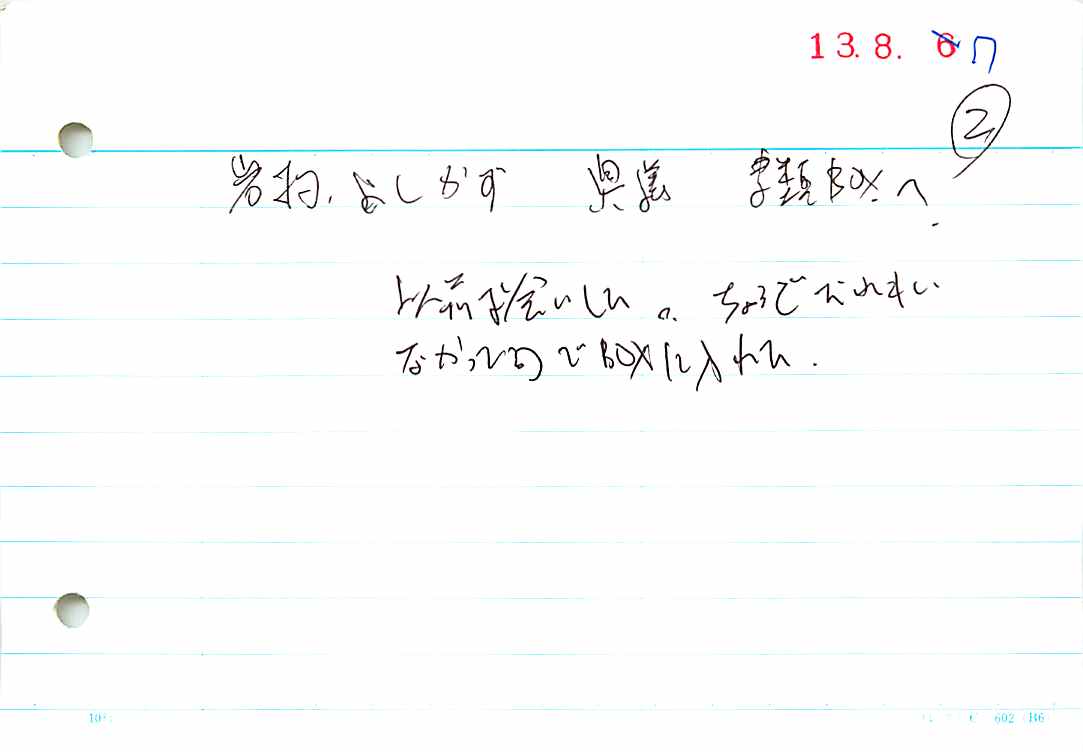 13.8. 6 7
②
岩村、よしかず 県議 書類BOXへ.
以前お会いした。ちょうどだれもい
なかったのでBOXに入れた.
602 B6